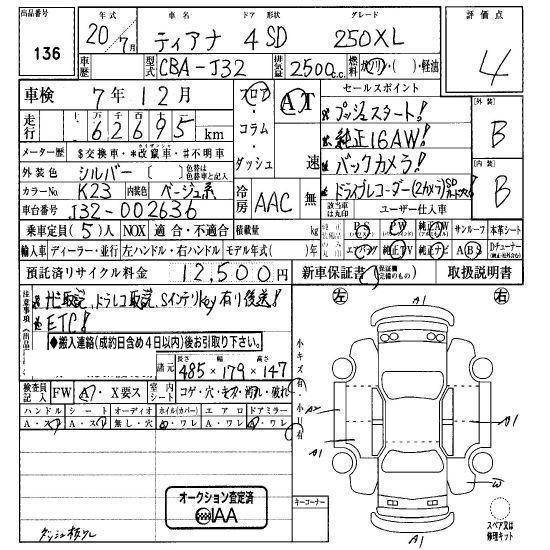 出品番号 136
年式 20年7月
車名 ティアナ
ドア 形状 4 SD
グレード 250XL
評価点 4
車歴
型式 CBA-J32
排気量 2500c.c.
燃料 ガソリン・( )・軽油
車検 7年12月
フロア・コラム・ダッシュ
AT
速
セールスポイント
プッシュスタート!
純正16AW!
バックカメラ!
ドライブレコーダー(2カメラ)SDカード欠
外装 B
内装 B
走行 62695 km
メーター歴 $交換車・*改竄車・#不明車
外装色 シルバー ( ) 色替は色替車と記入
カラーNo. K23 内装色 ベージュ系
冷房 AAC 無
車台番号 J32-002636
該当車は丸印
ユーザー仕入車
乗車定員(5)人 NOX 適合・不適合 積載量 kg
PS PW サンルーフ 本革シート
輸入車 ディーラー・並行 左ハンドル・右ハンドル モデル年式( )年
エアバッグ 純正TV 純正ナビ ABS Dチューナー
預託済リサイクル料金 12,500円
新車保証書
取扱説明書
注意事項
ナビ取説、ドラレコ取説、SインテリKey有り後送!
ETC!
●搬入連絡(成約日含め4日以内)後お引取り下さい。
諸元 長さ 485 × 幅 179 × 高さ 147
検査員記入 FW A・X要ス 室内シート コゲ・穴・キズ・汚れ・破れ
ハンドル シート オーディオ ホイル(カバー) エアロ ドアミラー
A・ス A・ス 無し・穴 A・ワレ A・ワレ A・ワレ
小キズ有・小凹有
左 右
A1
A2
A1
A1
A1
W
A1
キーコーナー
スペア又は修理キット
オークション査定済
IAA